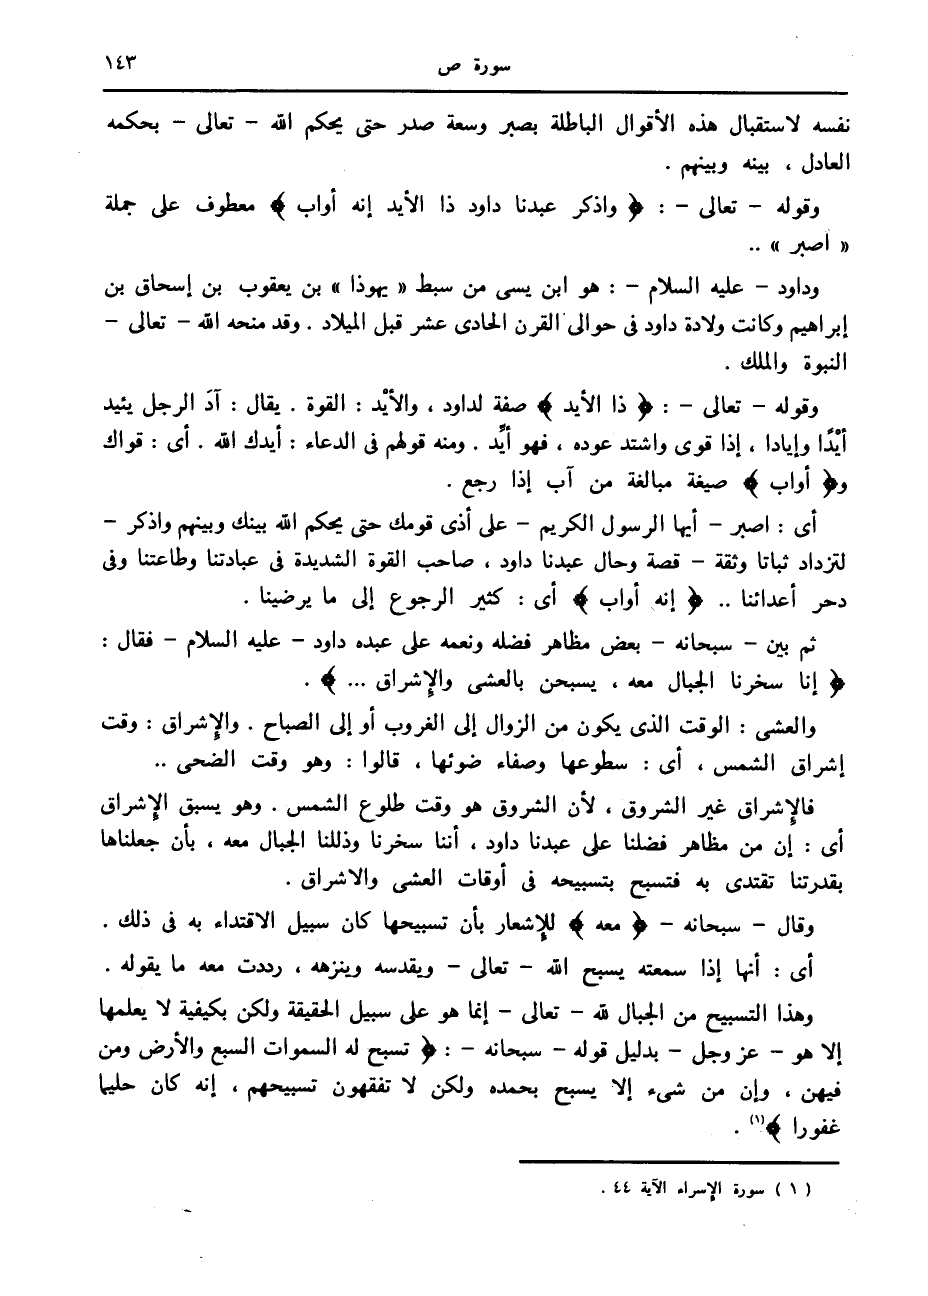 سورة ص ١٤٣
نفسه لاستقبال هذه الأقوال الباطلة بصبر وسعة صدر حتى يحكم الله – تعالى – بحكمه
العادل ، بينه وبينهم .
وقوله – تعالى – : ﴿ واذكر عبدنا داود ذا الأيد إنه أواب ﴾ معطوف على جملة
« اصبر » ..
وداود – عليه السلام – : هو ابن يسى من سبط « يهوذا » بن يعقوب بن إسحاق بن
إبراهيم وكانت ولادة داود فى حوالى القرن الحادى عشر قبل الميلاد . وقد منحه الله – تعالى –
النبوة والملك .
وقوله – تعالى – : ﴿ ذا الأيد ﴾ صفة لداود ، والأيْد : القوة . يقال : آدَ الرجل يئيد
أيْدًا وإيادا ، إذا قوى واشتد عوده ، فهو أيِّد . ومنه قولهم فى الدعاء : أيدك الله . أى : قواك
و﴿ أواب ﴾ صيغة مبالغة من آب إذا رجع .
أى : اصبر – أيها الرسول الكريم – على أذى قومك حتى يحكم الله بينك وبينهم واذكر –
لتزداد ثباتا وثقة – قصة وحال عبدنا داود ، صاحب القوة الشديدة فى عبادتنا وطاعتنا وفى
دحر أعدائنا .. ﴿ إنه أواب ﴾ أى : كثير الرجوع إلى ما يرضينا .
ثم بين – سبحانه – بعض مظاهر فضله ونعمه على عبده داود – عليه السلام – فقال :
﴿ إنا سخرنا الجبال معه ، يسبحن بالعشى والإشراق ... ﴾ .
والعشى : الوقت الذى يكون من الزوال إلى الغروب أو إلى الصباح . والإشراق : وقت
إشراق الشمس ، أى : سطوعها وصفاء ضوئها ، قالوا : وهو وقت الضحى ..
فالإشراق غير الشروق ، لأن الشروق هو وقت طلوع الشمس . وهو يسبق الإشراق
أى : إن من مظاهر فضلنا على عبدنا داود ، أننا سخرنا وذللنا الجبال معه ، بأن جعلناها
بقدرتنا تقتدى به فتسبح بتسبيحه فى أوقات العشى والاشراق .
وقال – سبحانه – ﴿ معه ﴾ للإشعار بأن تسبيحها كان سبيل الاقتداء به فى ذلك .
أى : أنها إذا سمعته يسبح الله – تعالى – ويقدسه وينزهه ، رددت معه ما يقوله .
وهذا التسبيح من الجبال لله – تعالى – إنما هو على سبيل الحقيقة ولكن بكيفية لا يعلمها
إلا هو – عز وجل – بدليل قوله – سبحانه – : ﴿ تسبح له السموات السبع والأرض ومن
فيهن ، وإن من شىء إلا يسبح بحمده ولكن لا تفقهون تسبيحهم ، إنه كان حليما
غفورا ﴾(١) .
( ١ ) سورة الإسراء الآية ٤٤ .